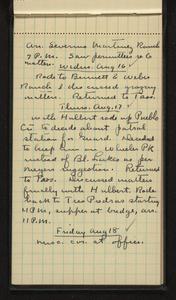 Arr. Severino Martinez Ranch
7 P.M. Saw permittees re G
matters. Wednes. Aug 16
Rode to Bennett & Webers
Ranch & discussed grazing
matters. Returned to Taos.
Thurs. Aug. 17
with Hulbert rode up Pueblo
Cn to decide about patrol
station & Guard. Decided
to keep him on Wheeler PK
instead of Bl. Lakes as per
mayors suggestion. Returned
to Taos. Discussed matters
finally with Hulbert. Rode
back to Tres Piedras starting
4 P.M., supper at bridge, arr.
11 P.M.
Friday Aug 18
Misc. cor. at office.